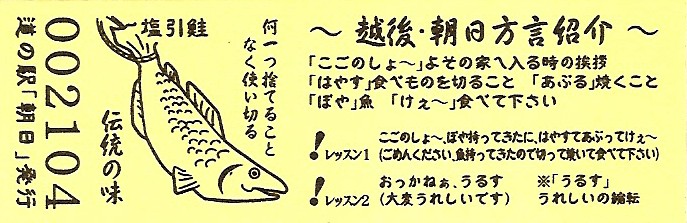 002104
道の駅「朝日」発行
塩引鮭
何一つ捨てること
なく使い切る
伝統の味
～ 越後・朝日方言紹介 ～
「ここのしょ～」よその家へ入る時の挨拶
「はやす」食べものを切ること 「あぶる」焼くこと
「ぼや」魚 「けぇ～」食べて下さい
! レッスン1 ここのしょ～、ぼや持ってきたに、はやすてあぶってけぇ～
(ごめんください、魚持ってきたので切って焼いて食べて下さい)
! レッスン2 おっかねぁ、うるす ※「うるす」
(大変うれしいです) うれしいの縮転